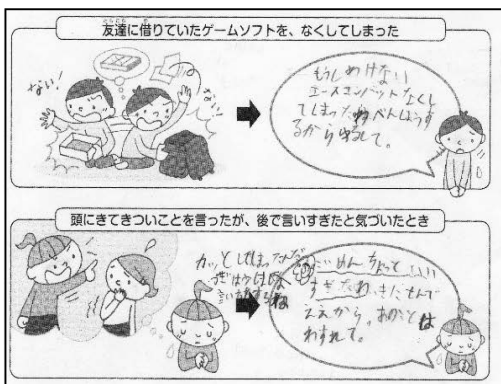 友達に借りていたゲームソフトを、なくしてしまった
ない!
ない!
もうしわけない
エースコンバットなくし
てしまったねべんしょうす
るからゆるして。
頭にきてきついことを言ったが、後で言いすぎたと気づいたとき
カッとしてしまったんだ
ごめんちょっといい
すぎたわ、きにせんで
ええから。あのことは
わすれて。